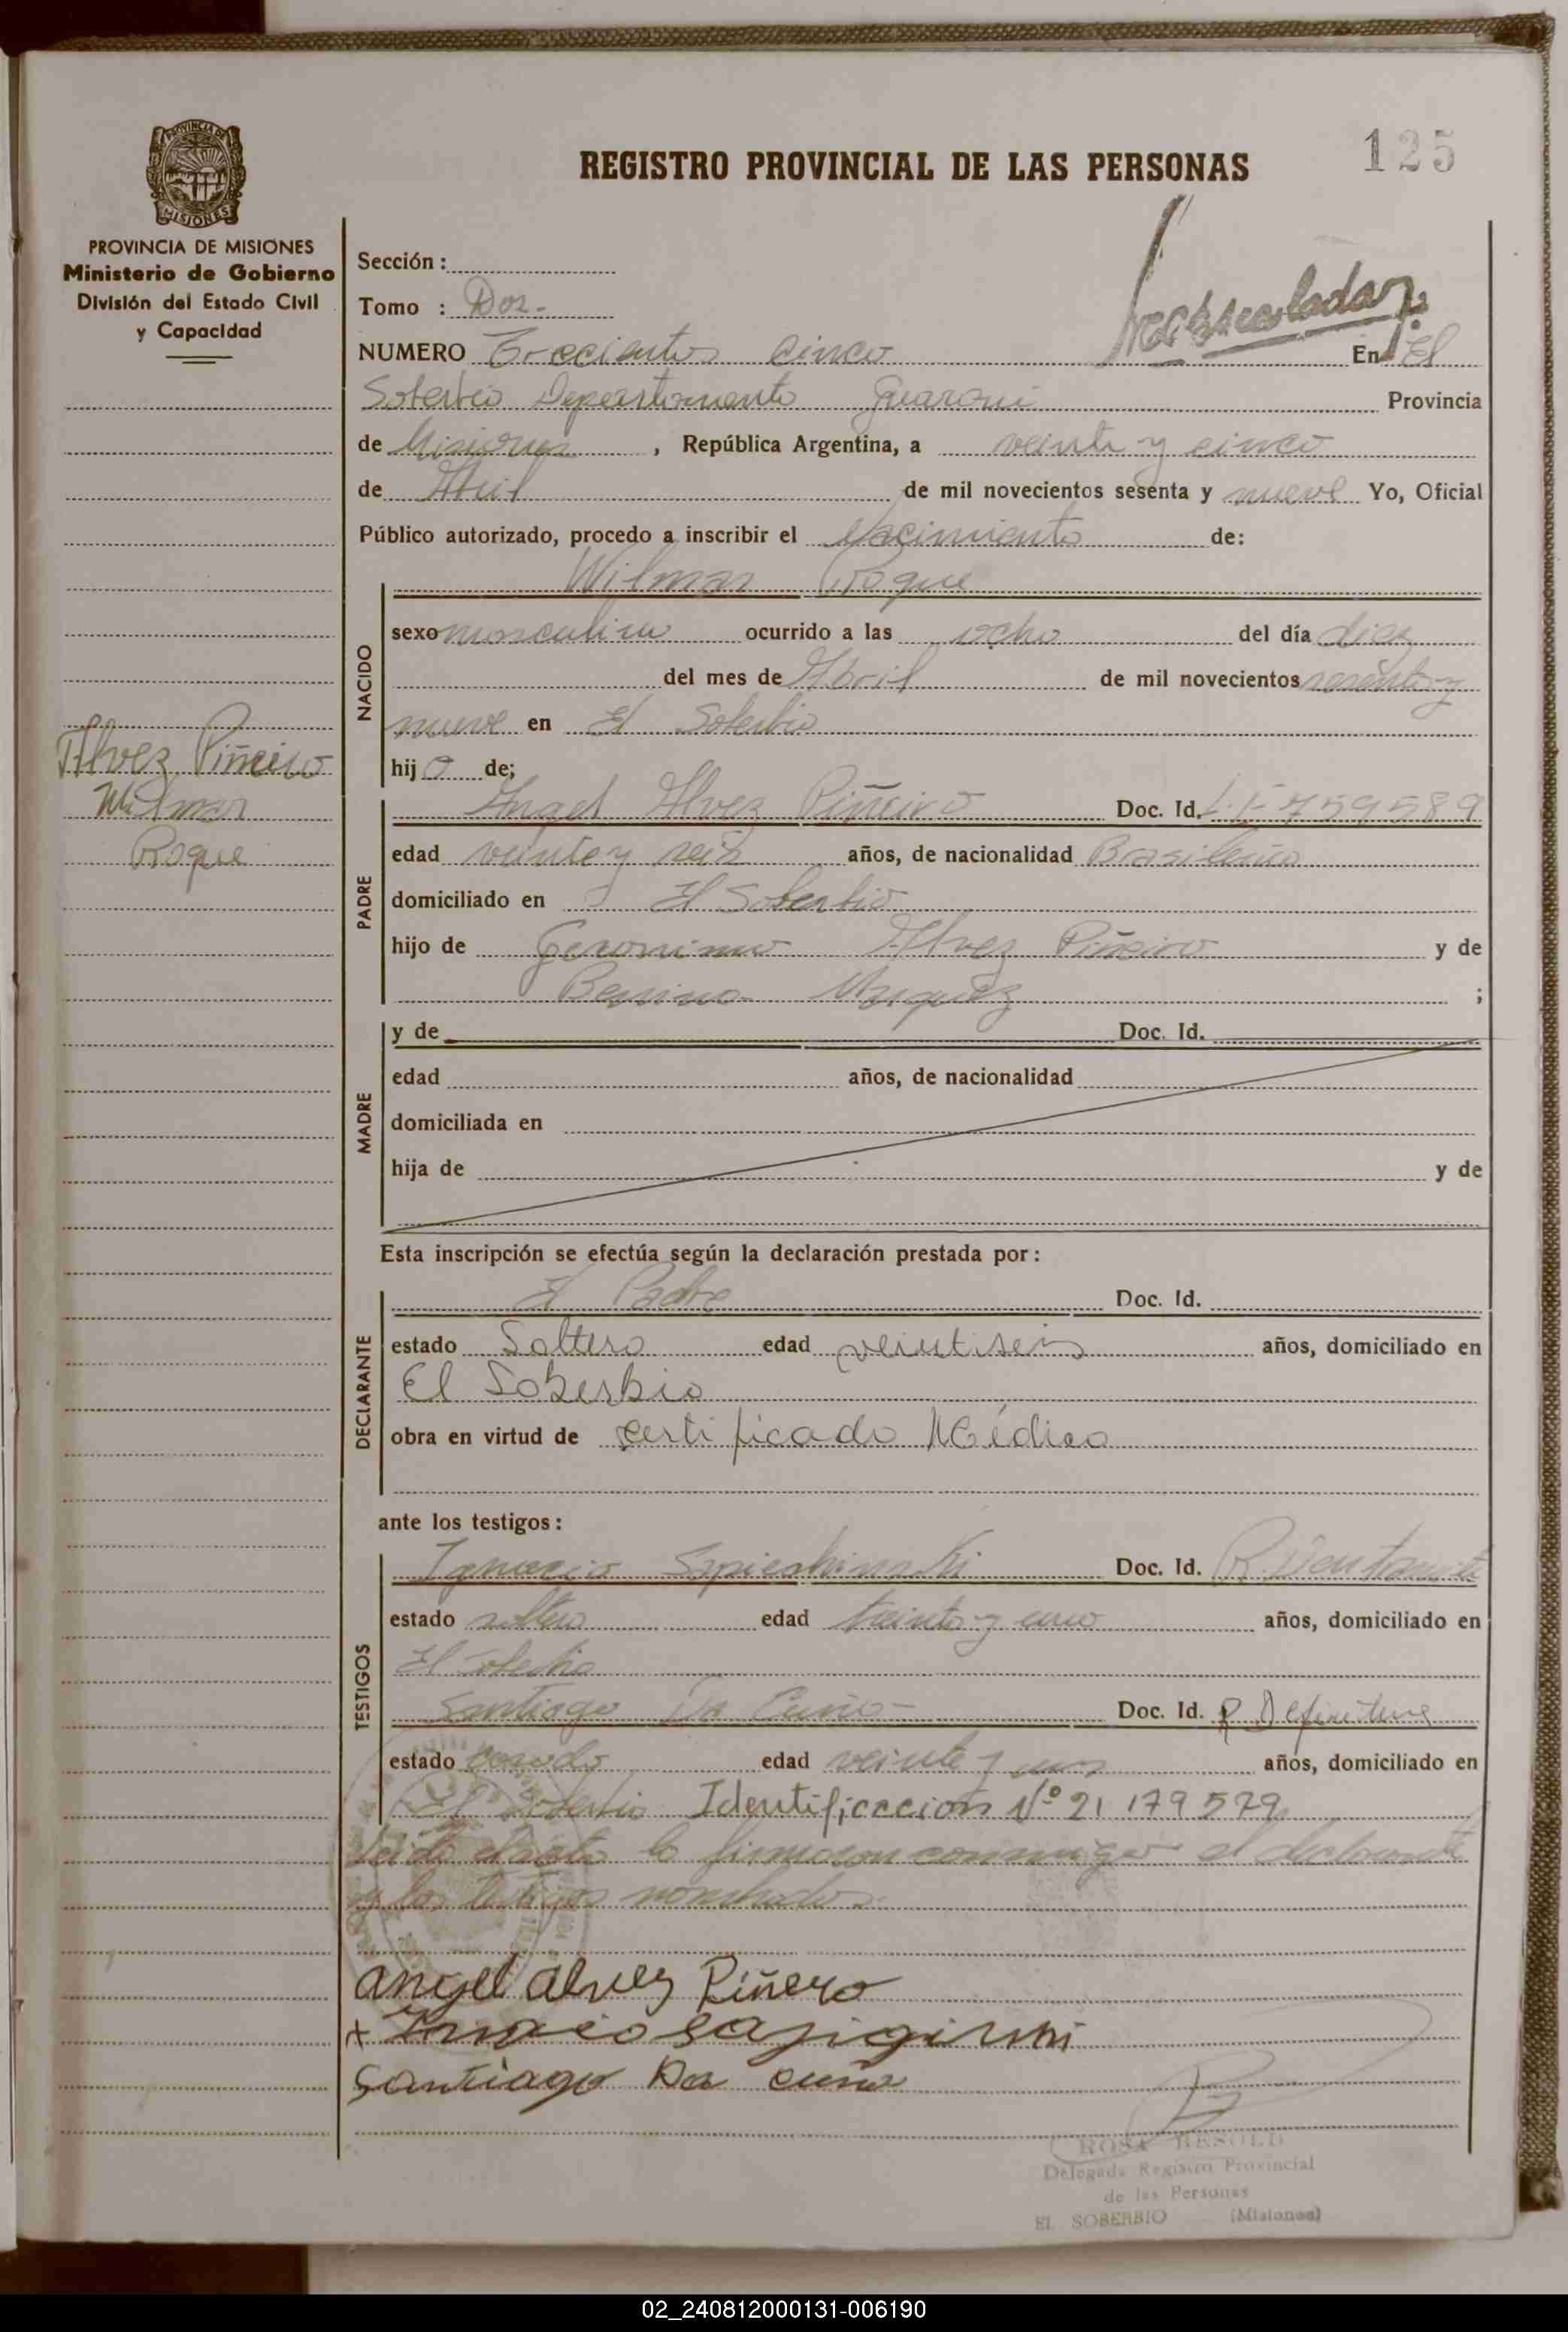 125
REGISTRO PROVINCIAL DE LAS PERSONAS
PROVINCIA DE MISIONES
PROVINCIA DE MISIONES
Ministerio de Gobierno
División del Estado Civil
y Capacidad
Sección :
Tomo : Dos.-
NUMERO Trecientos cinco En El
Soberbio Departamento Guarani Provincia
de Misiones , República Argentina, a veinte y cinco
de Abril de mil novecientos sesenta y nueve Yo, Oficial
Público autorizado, procedo a inscribir el Nacimiento de:
Wilmar Roque
NACIDO
sexo masculino ocurrido a las ocho del día diez
del mes de Abril de mil novecientos sesenta y
nueve en El Soberbio
hijo de;
Alvez Piñeiro
Wilmar
Roque
PADRE
Angel Alvez Piñeiro Doc. Id. 759589
edad veinte y seis años, de nacionalidad Brasileña
domiciliado en El Soberbio
hijo de Geronimo Alvez Piñeiro y de
;
MADRE
y de Doc. Id.
edad años, de nacionalidad
domiciliada en
hija de y de
Esta inscripción se efectúa según la declaración prestada por :
DECLARANTE
El Padre Doc. Id.
estado Soltero edad veintiseis años, domiciliado en
El Soberbio
obra en virtud de certificado Médico
ante los testigos :
TESTIGOS
Ignacio Doc. Id.
estado soltero edad treinta y uno años, domiciliado en
El Soberbio
Santiago Da Cuña Doc. Id.
estado casado edad veinte y uno años, domiciliado en
El Soberbio Identificación Nº 21 179 579
Leido el acta lo firmaron conmigo el declarante
y los testigos nombrados.
angel alvez Piñero
Santiago Da cuña
ROSA RESOLD
Delegada Registro Provincial
de las Personas
EL SOBERBIO (Misiones)
02_240812000131-006190